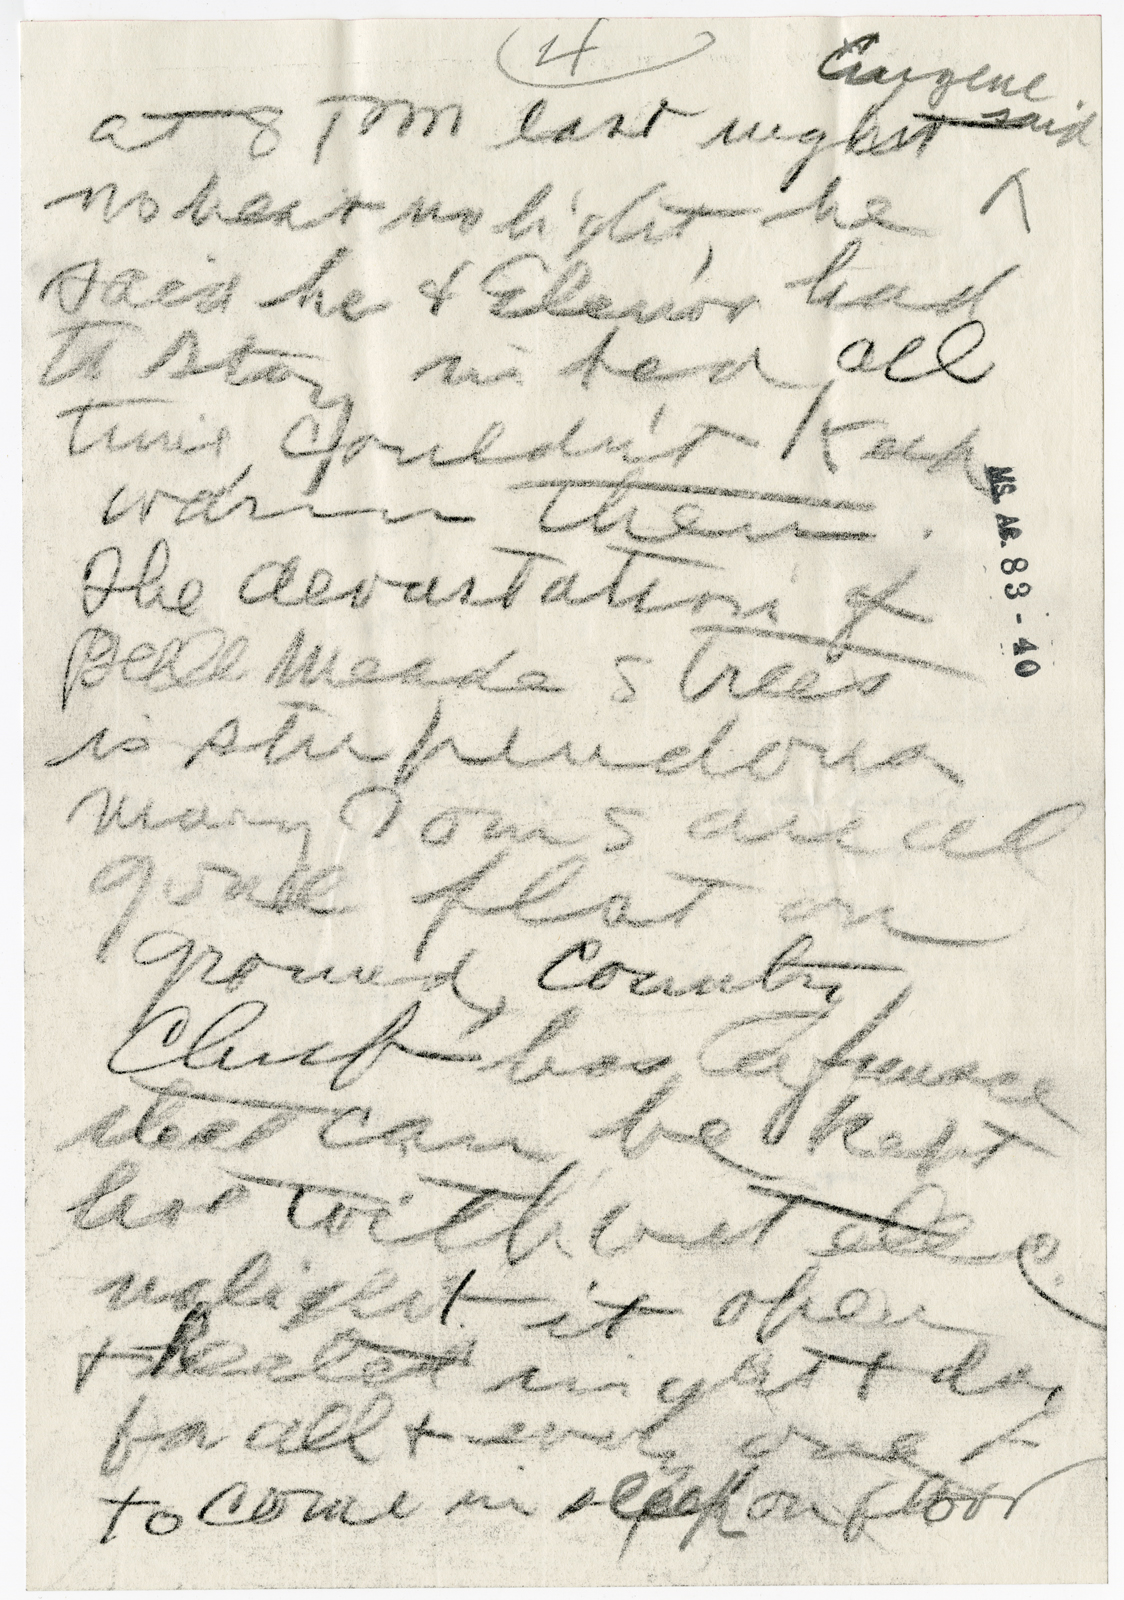 4
Eugene
said
at 8 P.M last night
no heat no light, he ^
said he & Elenor had
to stay in bed all
time couldn't keep
warm then.
The devastation of
Belle Meade s trees
is stupendous
many Toms are all
gone flat on
ground, Country
Club has a furnace
that can be kept
hot without elec
no light it open
& heated night & day
for all & every one
to come in sleep on floor
MS. AC. 83-40